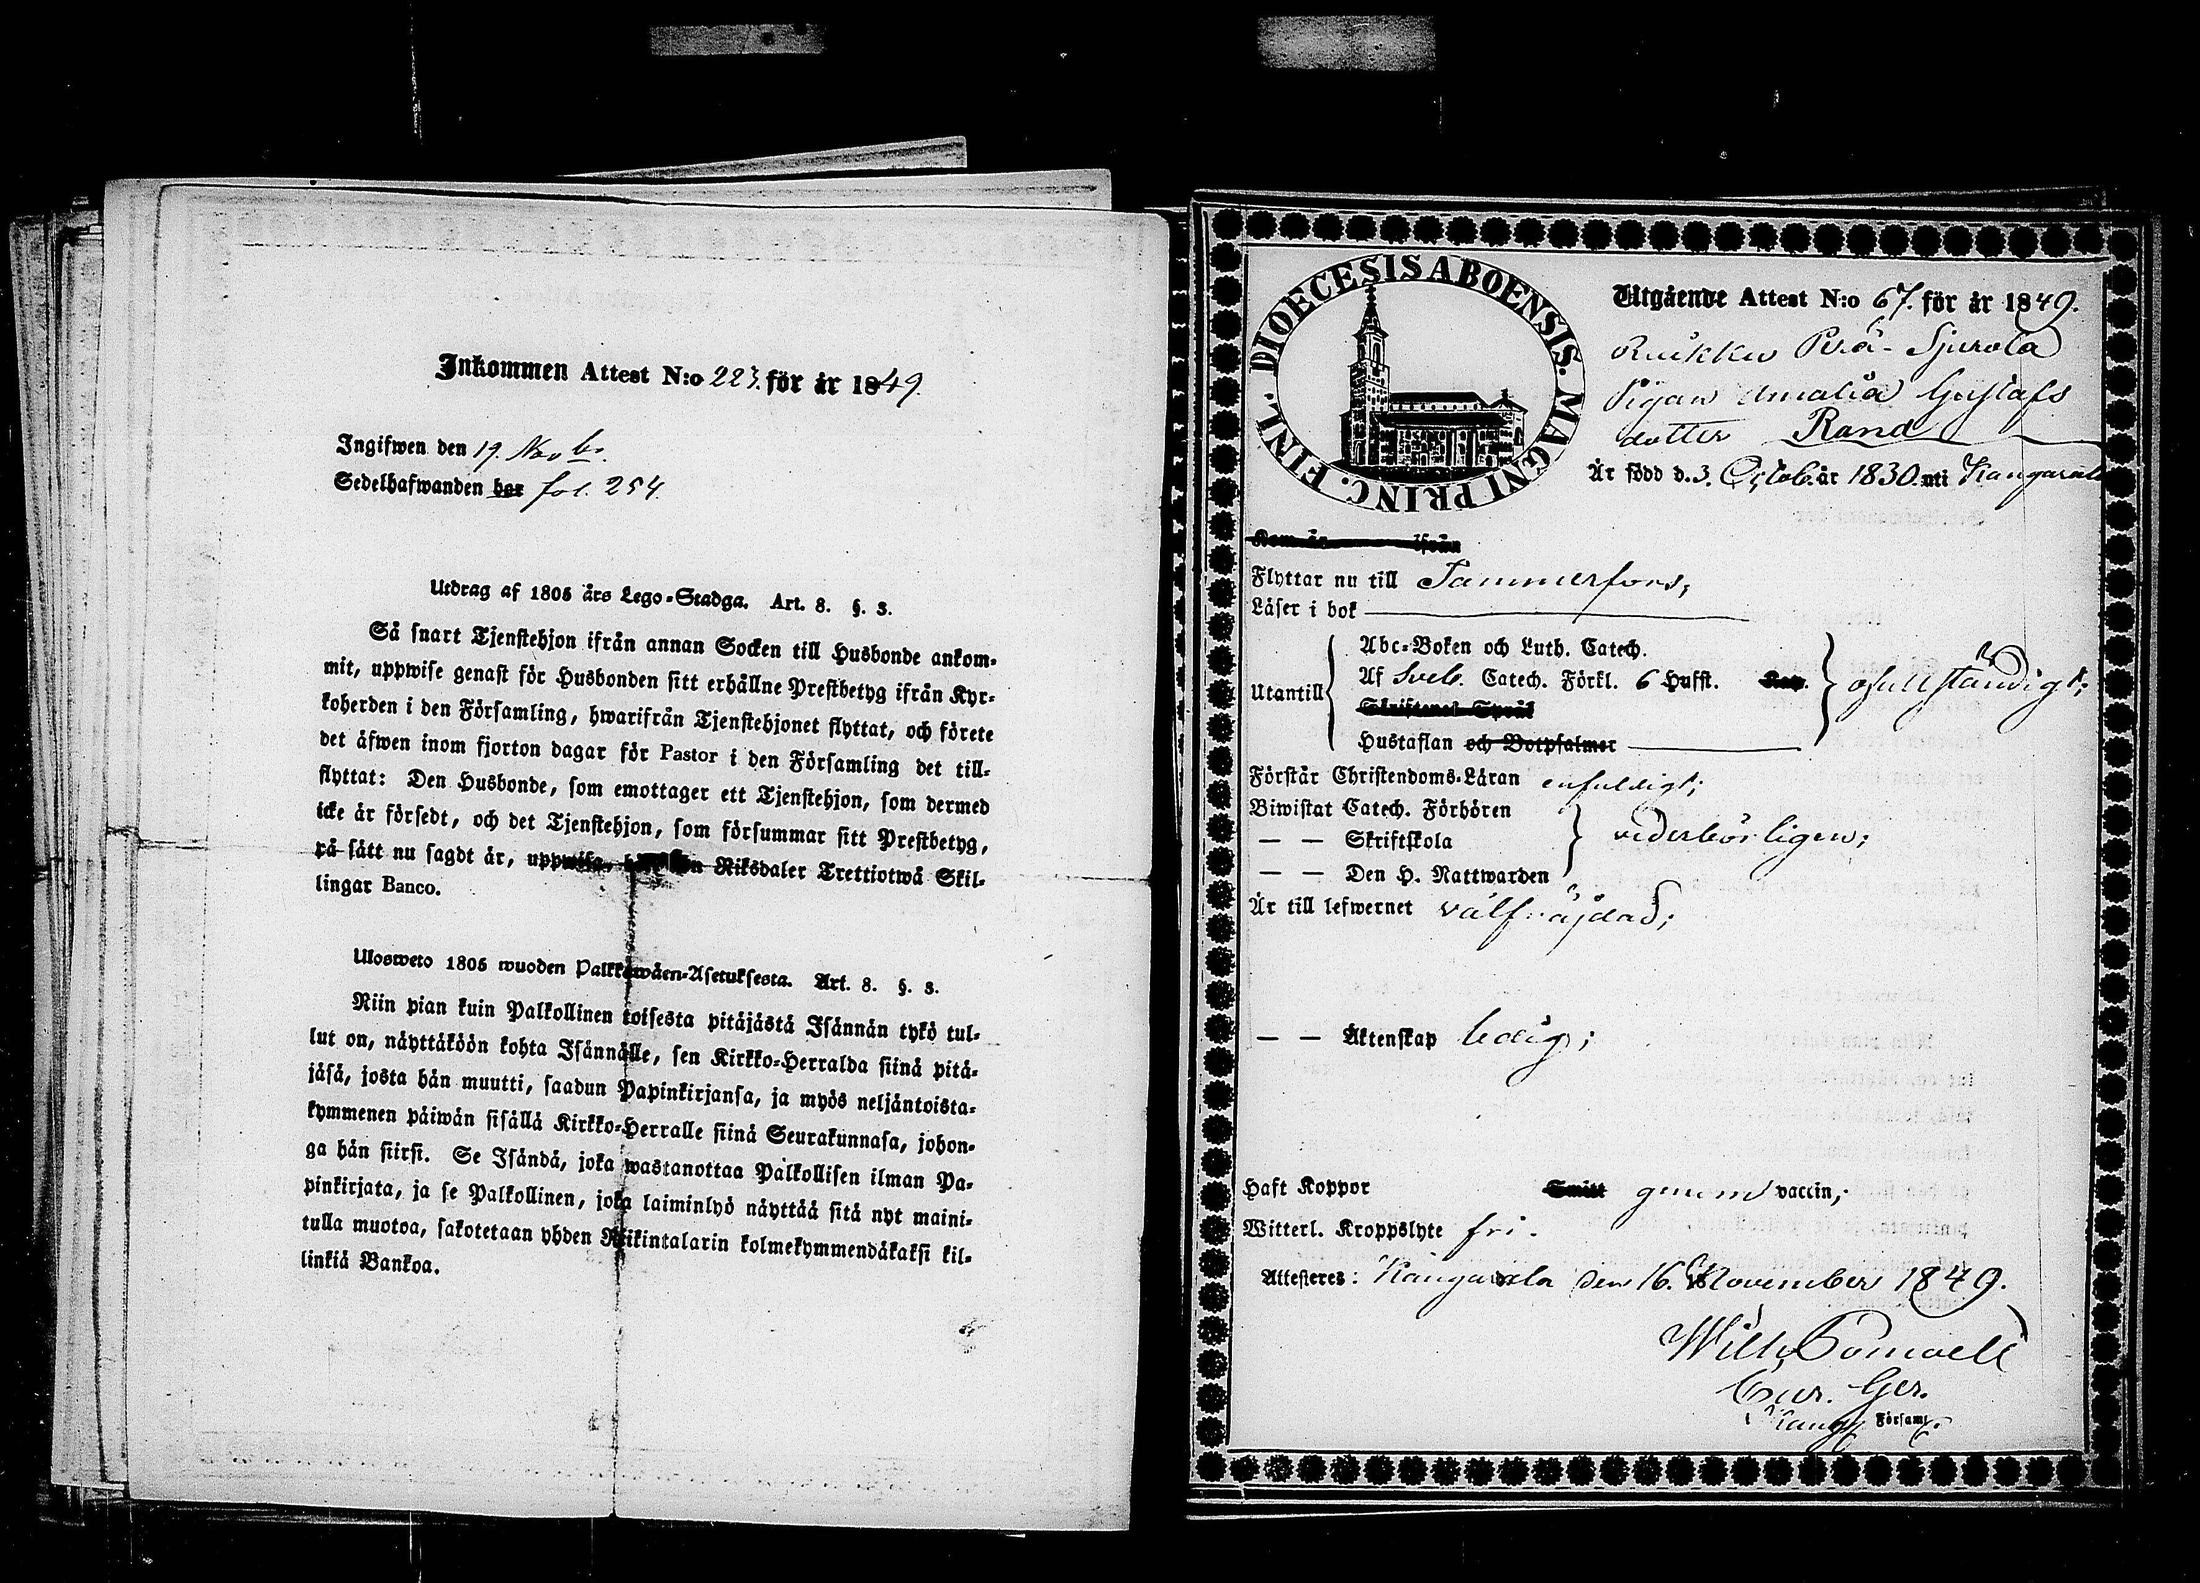 Inkommen Attest N:o 223. för år 1849.
Ingifwen den 19. Novbr.
Sedelhafwanden bor fol. 254.
Utdrag af 1805 års Lego-Stadga. Art. 8. §. 3.
Så snart Tjenstehjon ifrån annan Socken till Husbonde ankom-
mit, uppwise genast för Husbonden sitt erhållne Prestbetyg ifrån Kyr-
koherden i den Församling, hwarifrån Tjenstehjonet flyttat, och förete
det äfwen inom fjorton dagar för Pastor i den Församling det till-
flyttat: Den Husbonde, som emottager ett Tjenstehjon, som dermed
icke är försedt, och det Tjenstehjon, som försummar sitt Prestbetyg,
på sätt nu sagdt är, uppwisa, Riksdaler Trettiotwå Skil-
lingar Banco.
Ulosweto 1805 wuoden Palkkawäen-Asetuksesta. Art. 8. §. 3.
Niin pian kuin Palkollinen toisesta pitäjästä Isännän tykö tul-
lut on, näyttäköön kohta Isännälle, sen Kirkko-Herralda siinä pitä-
jäsä, josta hän muutti, saadun Papinkirjansa, ja myös neljäntoista-
kymmenen päiwän sisällä Kirkko-Herralle siinä Seurakunnasa, johon-
ga hän siirsi. Se Isändä, joka wastanottaa Palkollisen ilman Pa-
pinkirjata, ja se Palkollinen, joka laiminlyö näyttää sitä nyt maini-
tulla muotoa, sakotetaan yhden Riikintalarin kolmekymmendäkaksi kil-
linkiä Bankoa.
DIOECESIS ABOENSIS. MAGNI PRINC. FINL.
Utgående Attest N:o 67. för år 1849.
Perä-Sjurola
Pigan Amalia Gustafs
dotter Rand
Är född d. 3. Octob. år 1830. uti Kangasala
Kom år ifrån
Flyttar nu till Tammerfors;
Läser i bok
Utantill
Abc-Boken och Luth. Catech.
Af Sveb. Catech. Förkl. 6 Hufst.
ofullständigt;
Skriftenes Språk
Hustaflan och Botpsalmer
Förstår Christendoms-Läran enfaldigt;
Biwistat Catech. Förhören
— — Skriftskola
vederbörligen;
— — Den H. Nattwarden
Är till lefwernet välfräjdad;
— — Äktenskap ledig;
Haft Koppor Smitt genom vaccin;
Witterl. Kroppslyte fri.
Attesteres: Kangasala den 16. November 1849.
Wilh.
Cur. Ger.
Kang. Församl.